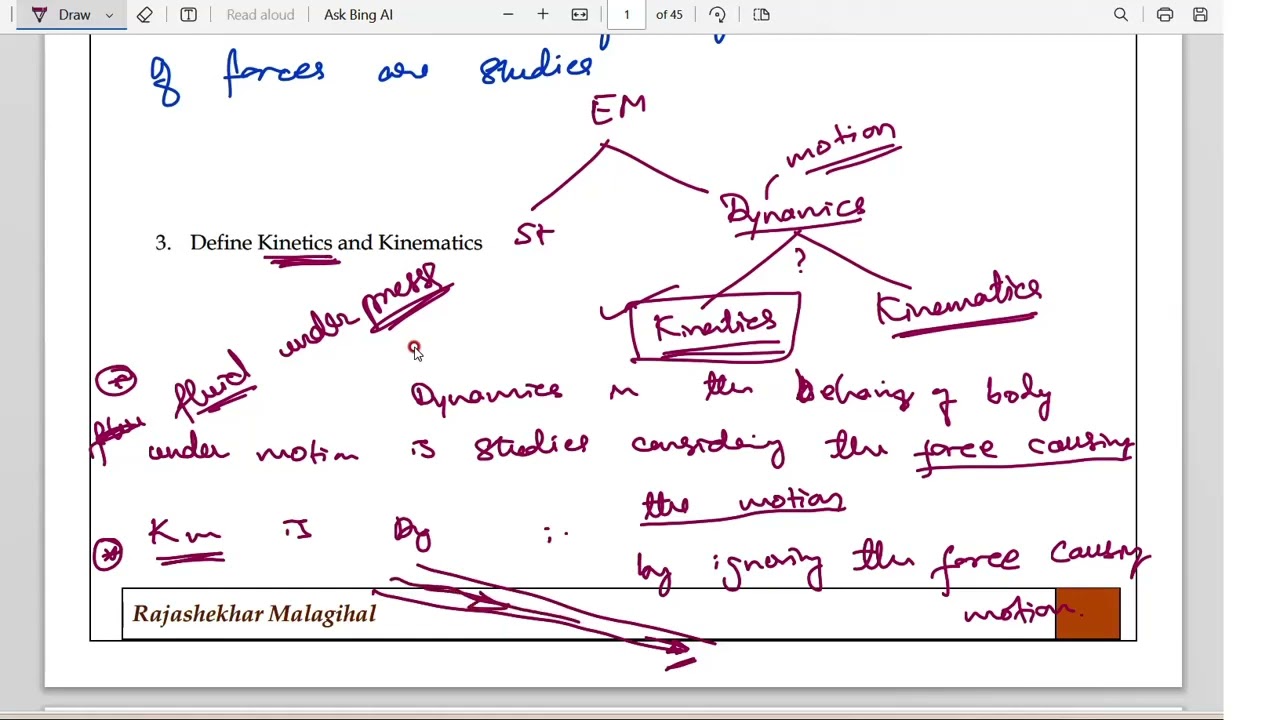 Draw
Read aloud
Ask Bing AI
1 of 45
of forces are studies
EM
motion
St
Dynamics
3. Define Kinetics and Kinematics
?
Kinetics
Kinematics
fluid under press
Dynamics in the behaving of body
under motion is studies considering the force causing
the motion
Km is Dy
by ignoring the force causing
motion.
Rajashekhar Malagihal